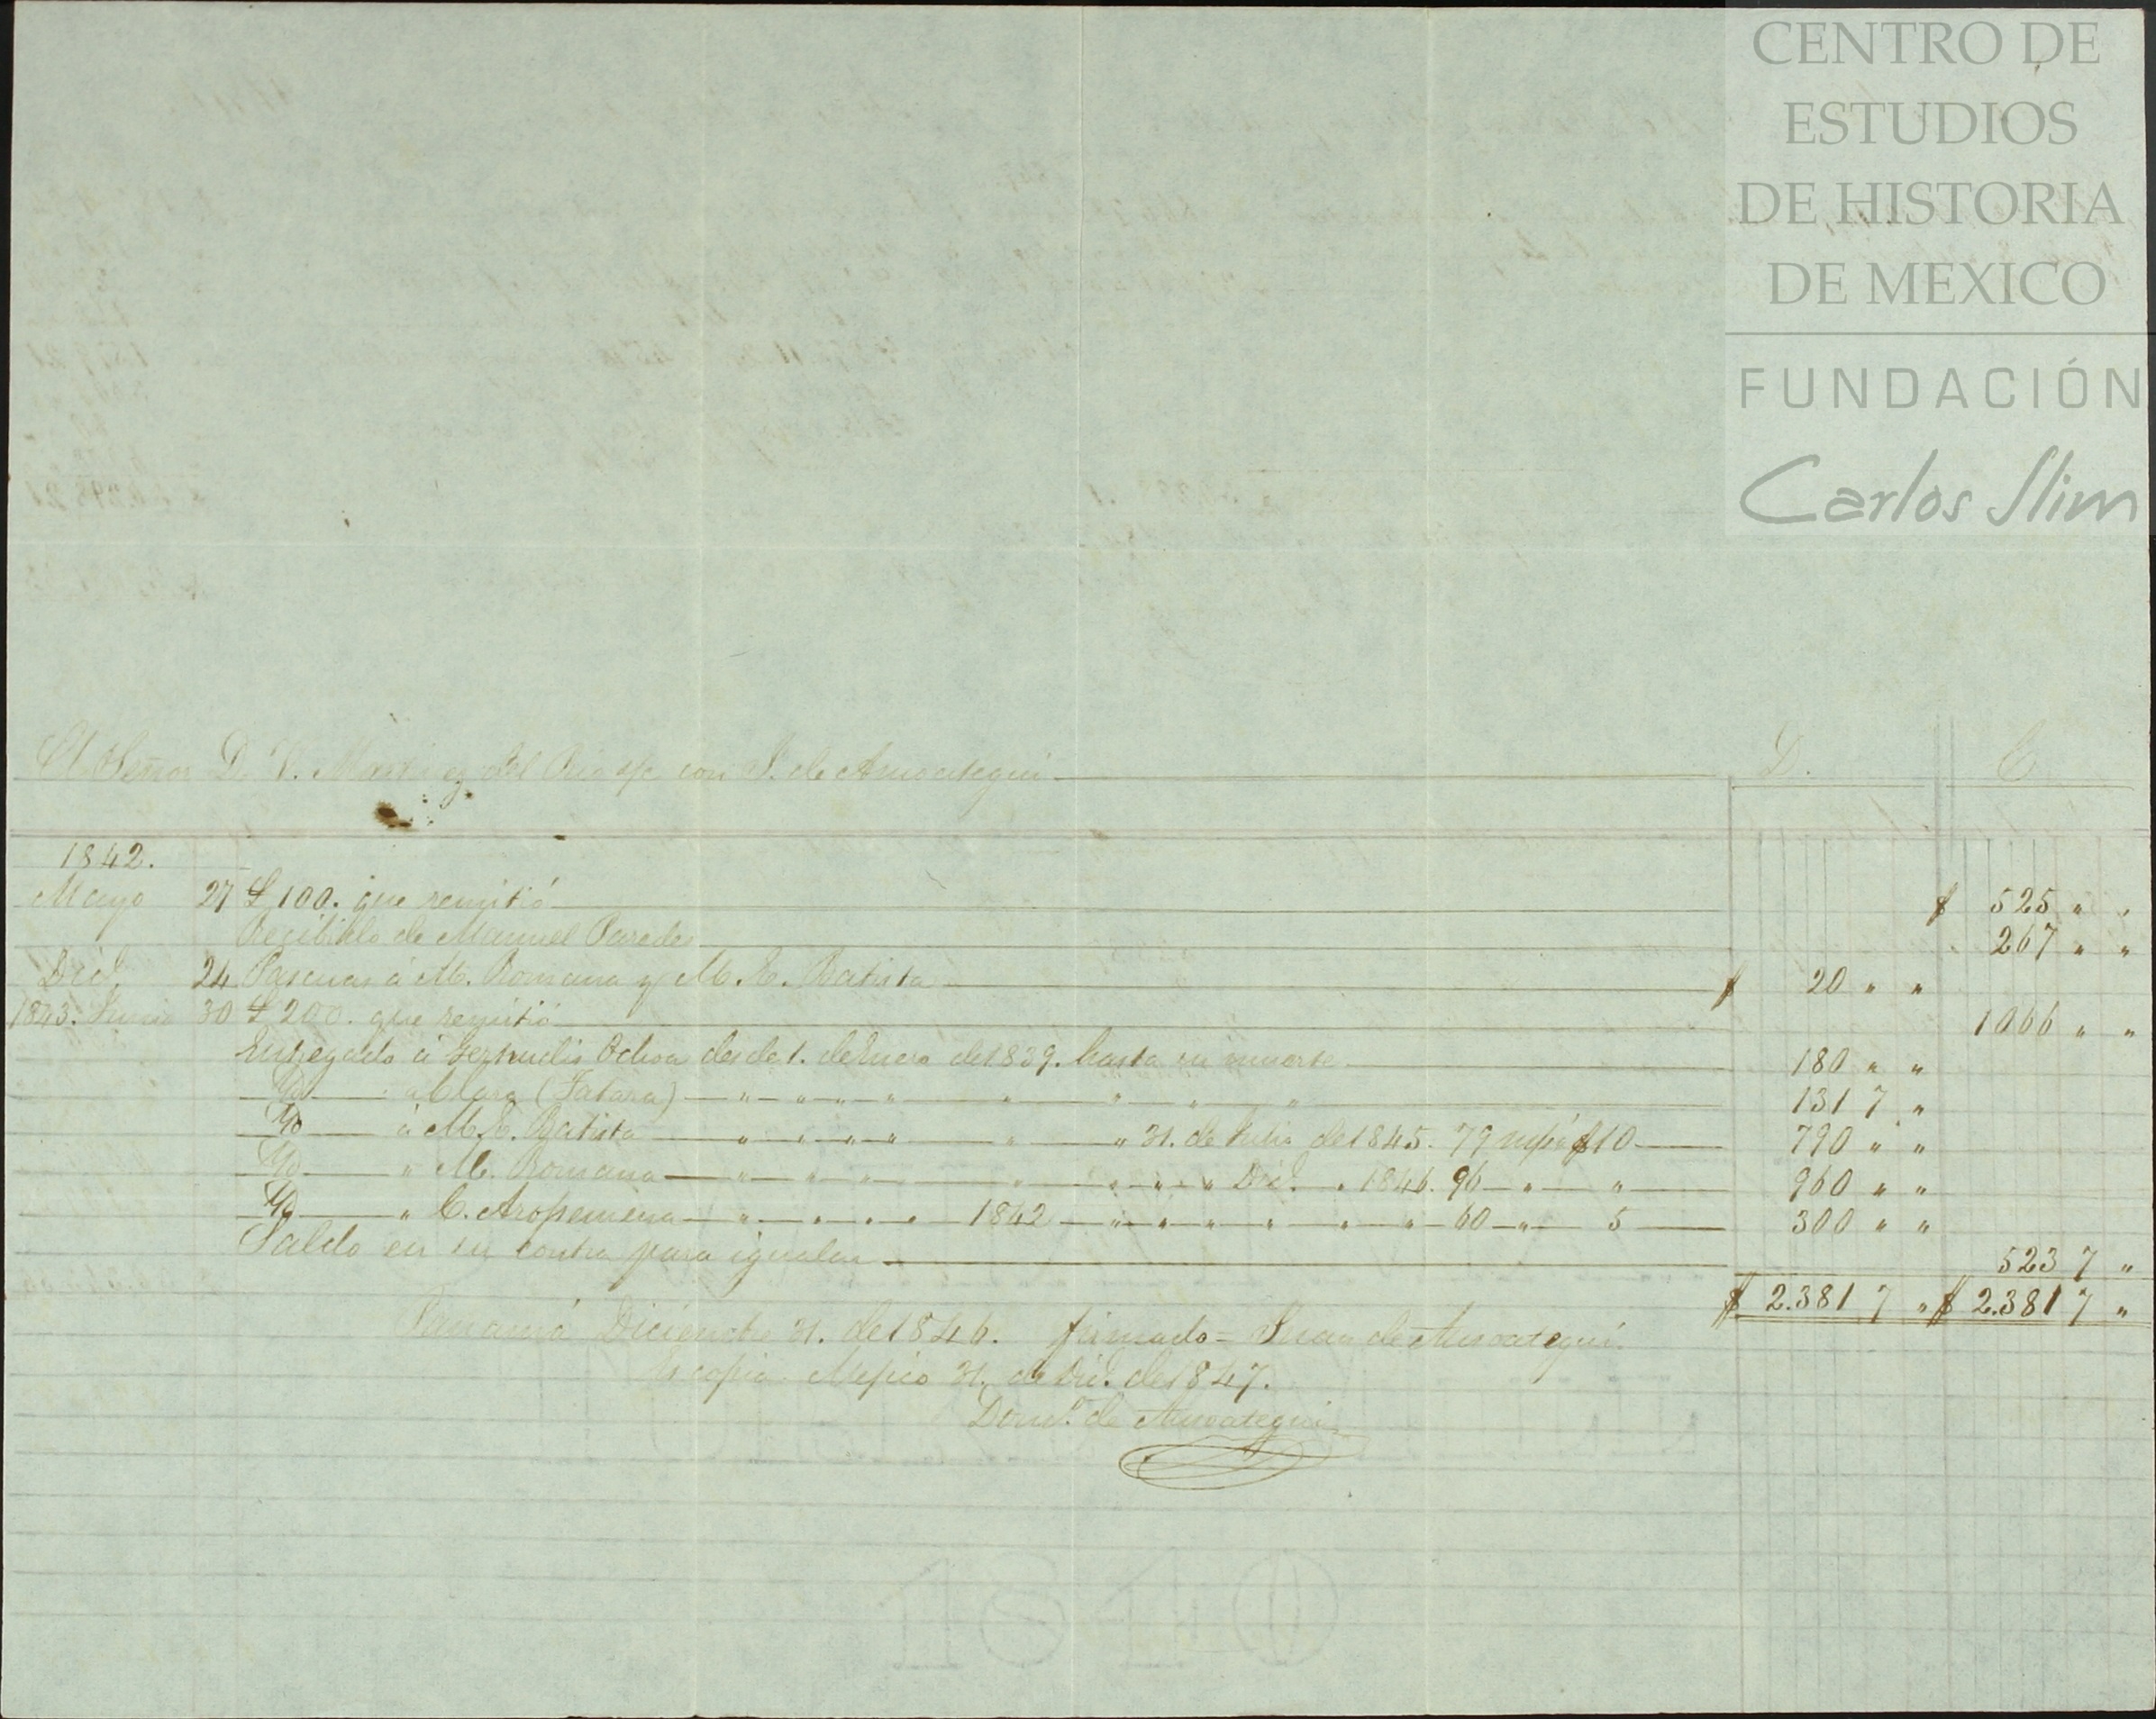 CENTRO DE
ESTUDIOS
DE HISTORIA
DE MEXICO
FUNDACIÓN
Carlos Slim
El Señor D. V. Martinez del Rio s/c con J. de Ansoategui D. C.
1842.
Mayo 27 £ 100. que remitió $ 525 " "
Recibido de Manuel Paredes 267 " "
Dic. 24 Pascuas á M. Romana y M. C. Batista $ 20 " "
1843. Junio 30 £ 200. que remitió 1066 " "
Entregado á Gertrudis Ochoa desde 1. de Enero de 1839. hasta su muerte 180 " "
" Clara (Tatara) " " " " " " " " 131 7 "
á M. C. Batista " " " " " " 31. de Julio de 1845. 79 $10 790 " "
" M. Romana " " " " " " " " " Dic. " 1846. 96 " " 960 " "
" C. Arosemena " " " " 1842 " " " " " " " 60 " 5 300 " "
Saldo en su contra para igualar 523 7 "
$ 2.381 7 " $ 2.381 7 "
Panamá Diciembre 31. de 1846. firmado = Juan de Ansoategui
Es copia Mejico 31. de Dic. de 1847.
Dom.º de Ansoategui